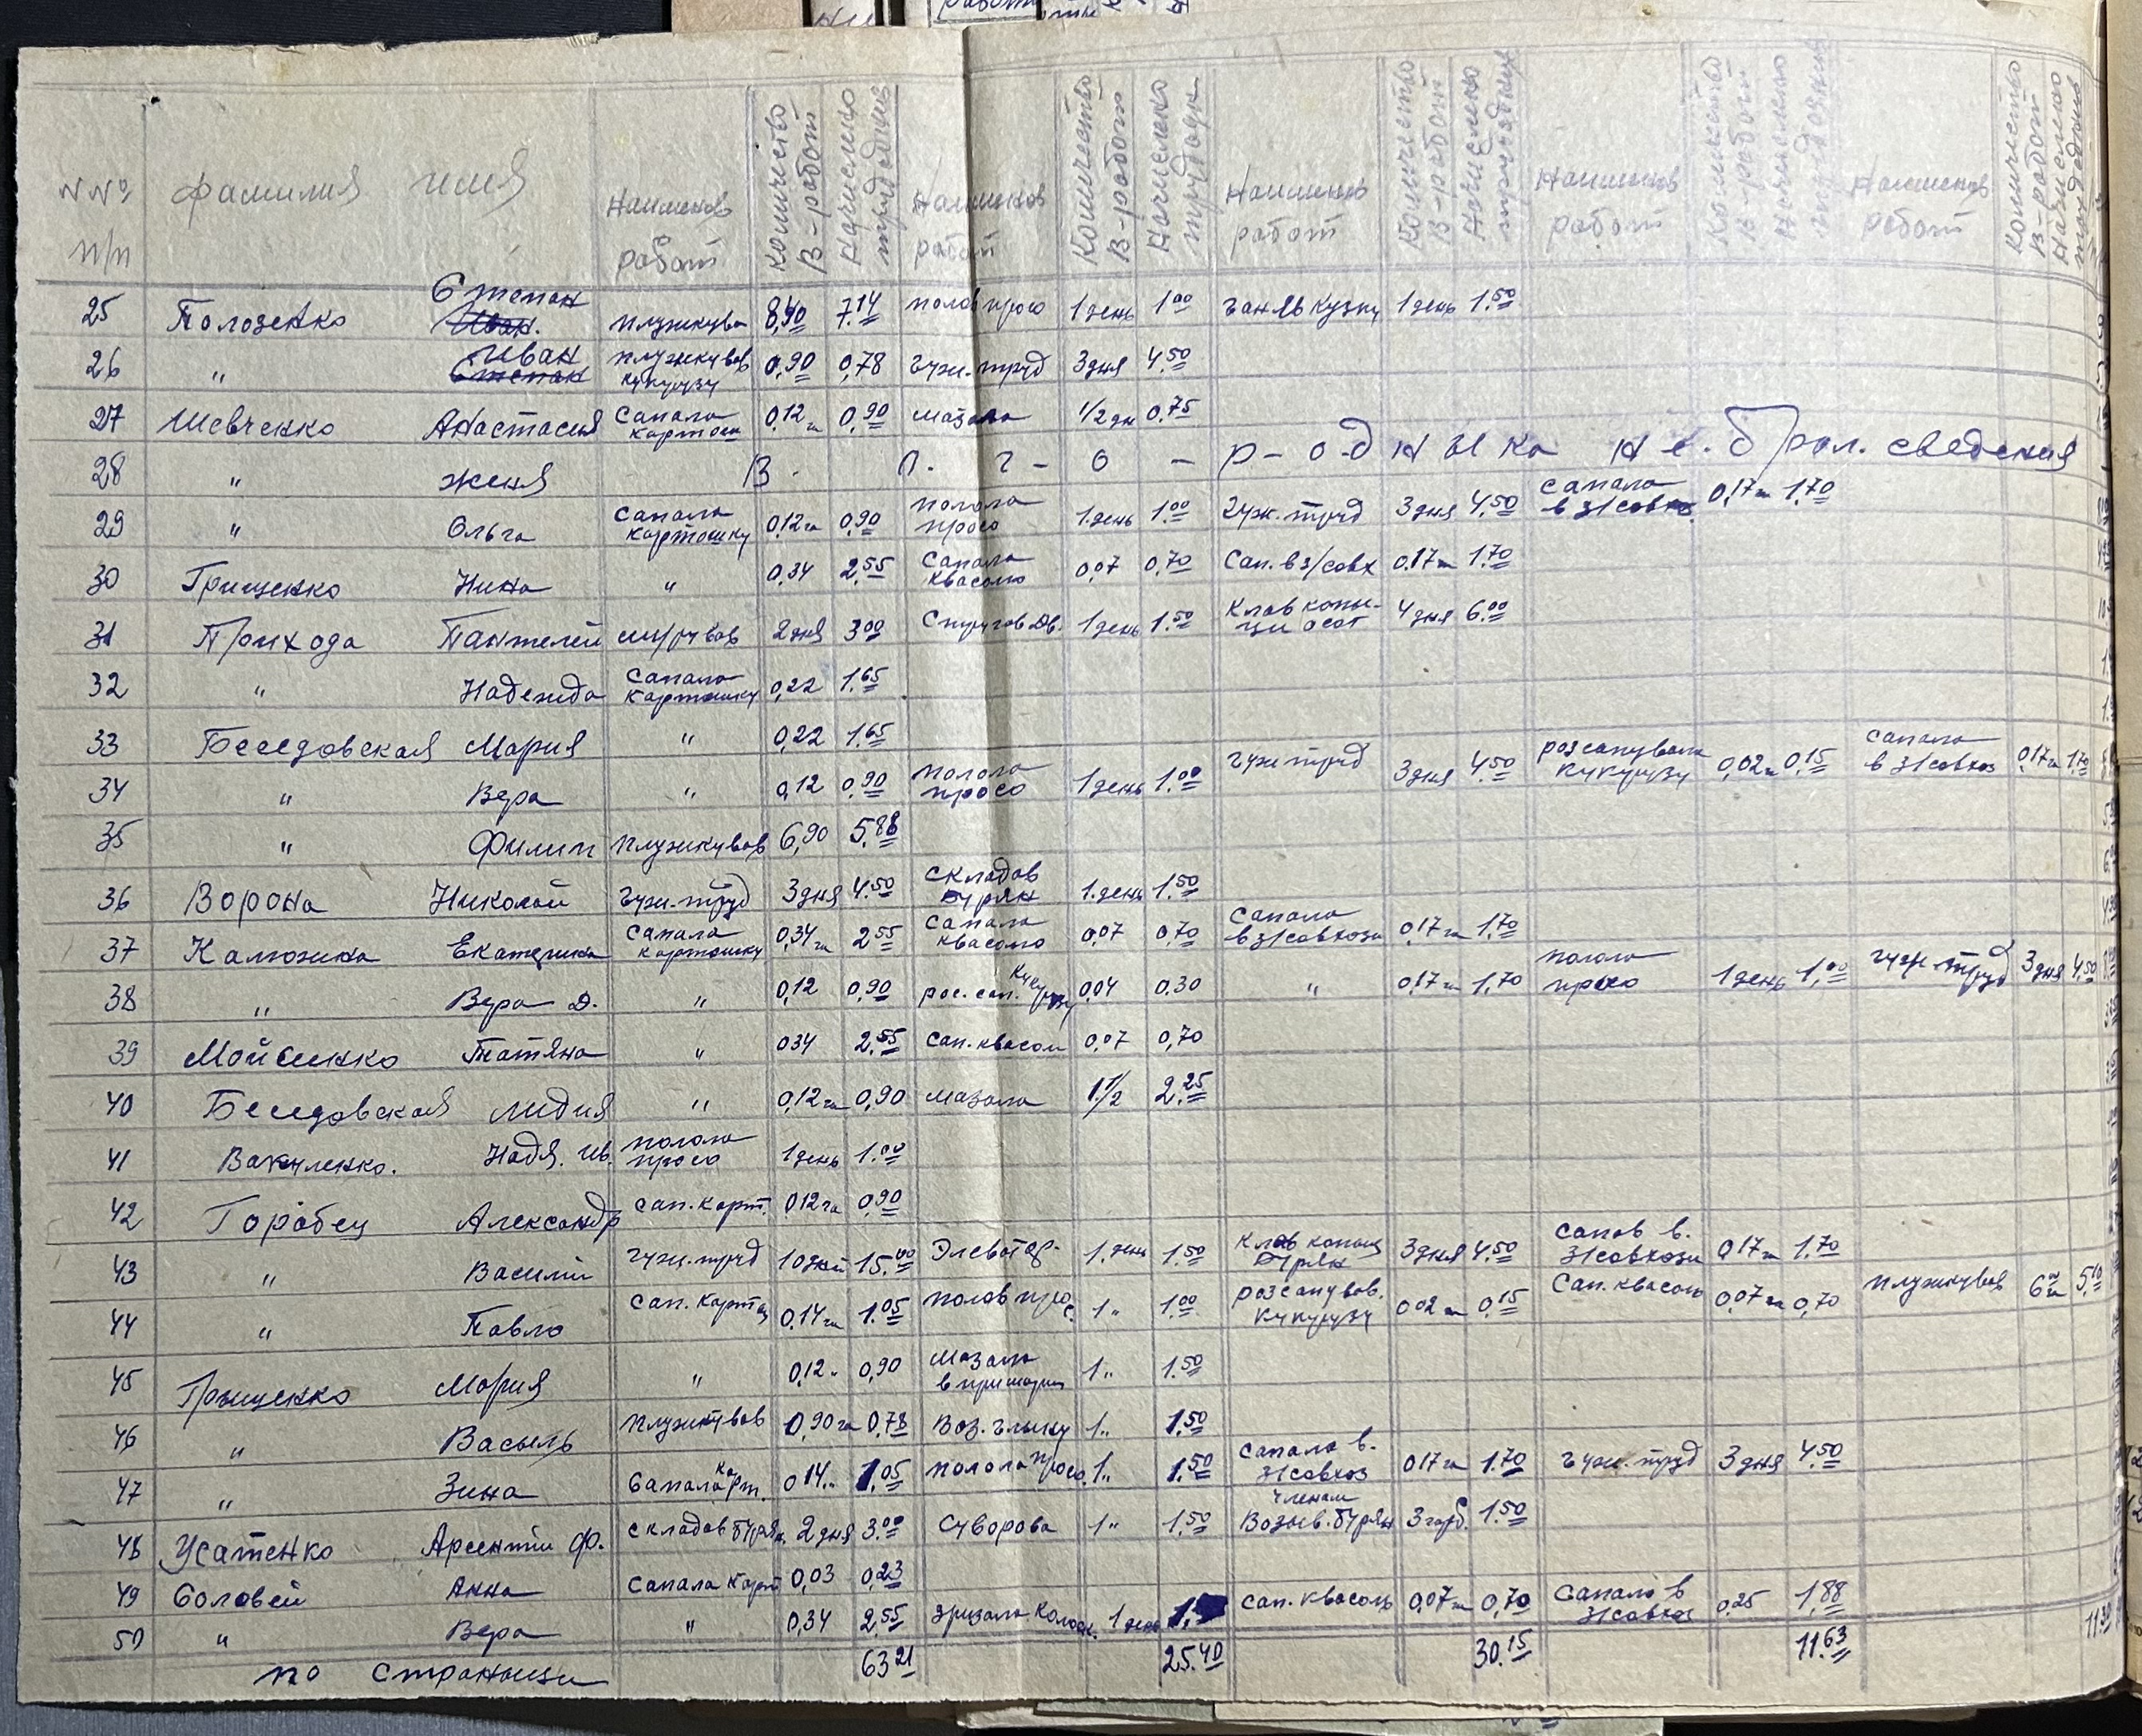 NNº п/п фамилия имя Наименов работ Количество В-работ Начислено трудодния Наименов работ Количество В-работ Начислено трудодн Наименов работ Количество В-работ Начислено трудодния Наименов работ Количество В-работ Начислено трудодния Наименов работ Количество В-работ Начислено трудодния
25 Полозенко Степан плужкував 8,90 7.14 полов просо 1 день 1.00 1 день 1.50
26 " Иван плужкував кукурузу 0,90 0,78 гуж. труд 3 дня 4.50
27 Шевченко Анастасия Сапала картош 0,12 га 0,90 мазала 1/2 дн 0.75
28 " женя В - П - г - о - р-о-д н и ка не. брал. сведения
29 " Ольга Сапала картошку 0,12 га 0,90 полола просо 1 день 1.00 Гуж. труд 3 дня 4.50 сапала в з/совхо 0,17 га 1,70
30 Грищенко Нина " 0,34 2,55 Сапала квасолю 0,07 0,70 Сап. в з/совх 0.17 га 1.70
31 Прихода Пантелей 2 дня 3.00 1 день 1.50 Клав копы- 4 дня 6.00
32 " Надежда Сапала картошку 0,22 1.65
33 Беседовская Мария " 0,22 1.65
34 " Вера " 0,12 0,90 полола просо 1 день 1.00 гуж труд 3 дня 4.50 розсапувала кукурузу 0,02 га 0.15 сапала в з/совхоз 0,17 га 1.70
35 " Филип плужкував 6,90 5.88
36 Ворона Николай Гуж. труд 3 дня 4.50 складов бурян 1 день 1.50
37 Калюжна Екатерина Сапала картошку 0,34 га 2.55 Сапала квасолю 0,07 0,70 Сапала в з/совхози 0,17 га 1.70
38 " Вера Д. " 0,12 0,90 рос. сап. Кукурузу 0,04 0,30 " 0,17 га 1,70 полола просо 1 день 1.00 гуж. труд 3 дня 4.50
39 Мойсиенко Татяна " 034 2.55 Сап. квасол 0,07 0,70
40 Беседовская лидия " 0,12 га 0,90 мазала 1 1/2 2.25
41 Вакуленко. Надя. Ив. полола просо 1 день 1.00
42 Горобец Александр сап. карт. 0,12 га 0,90
43 " Василий гуж. труд 10 дней 15.00 1. день 1.50 Клав копиц бурян 3 дня 4.50 сапов в. з/совхози 0,17 га 1.70
44 " Павло сап. картош 0.14 га 1.05 полов просо 1 " 1.00 розсапував. кукурузу 0.02 га 0,15 Сап. квасоль 0,07 га 0,70 плужкував 6 га 5.10
45 Грищенко Мария " 0,12 " 0,90 Мазала 1 " 1.50
46 " Василь плужкував 0,90 га 0,78 Воз. глину 1 " 1.50
47 " Зина Сапала карт. 0 14 " 1.05 полола просо 1 " 1.50 сапала в. з/совхоз 017 га 1.70 гуж. труд 3 дня 4.50
48 Усатенко Арсентий Ф. складов бурян 2 дня 3.00 Суворова 1 " 1,50 Возыв. бурян 3 1.50
49 Соловей Анна Сапала карт 0,03 0,23
50 " Вера " 0,34 2.55 1 день сап. квасоль 0,07 га 0,70 Сапала в з/совхоз 0.25 1,88
по страници 63 21 25.40 30.15 11.63 11.30